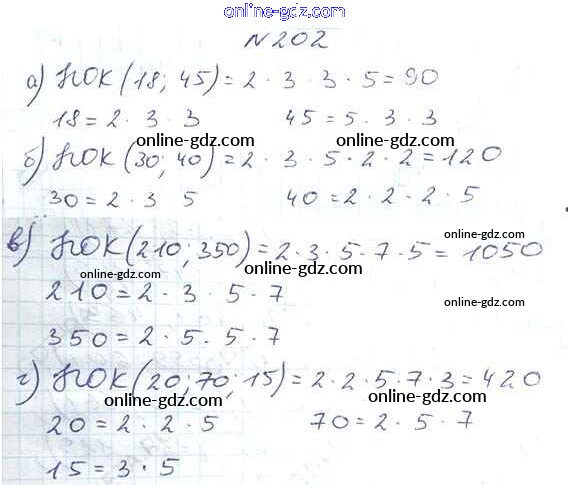 online-gdz.com
N 202
а) НОК (18; 45) = 2 · 3 · 3 · 5 = 90
18 = 2 · 3 · 3 45 = 5 · 3 · 3
online-gdz.com online-gdz.com
б) НОК (30; 40) = 2 · 3 · 5 · 2 · 2 = 120
online-gdz.com
30 = 2 · 3 5 40 = 2 · 2 · 2 · 5
online-gdz.com
в) НОК (210; 350) = 2 · 3 · 5 · 7 · 5 = 1050
online-gdz.com online-gdz.com online-gdz.com
210 = 2 · 3 · 5 · 7
online-gdz.com
350 = 2 · 5 · 5 · 7
г) НОК (20; 70; 15) = 2 · 2 · 5 · 7 · 3 = 420
online-gdz.com online-gdz.com
20 = 2 · 2 · 5 70 = 2 · 5 · 7
15 = 3 · 5